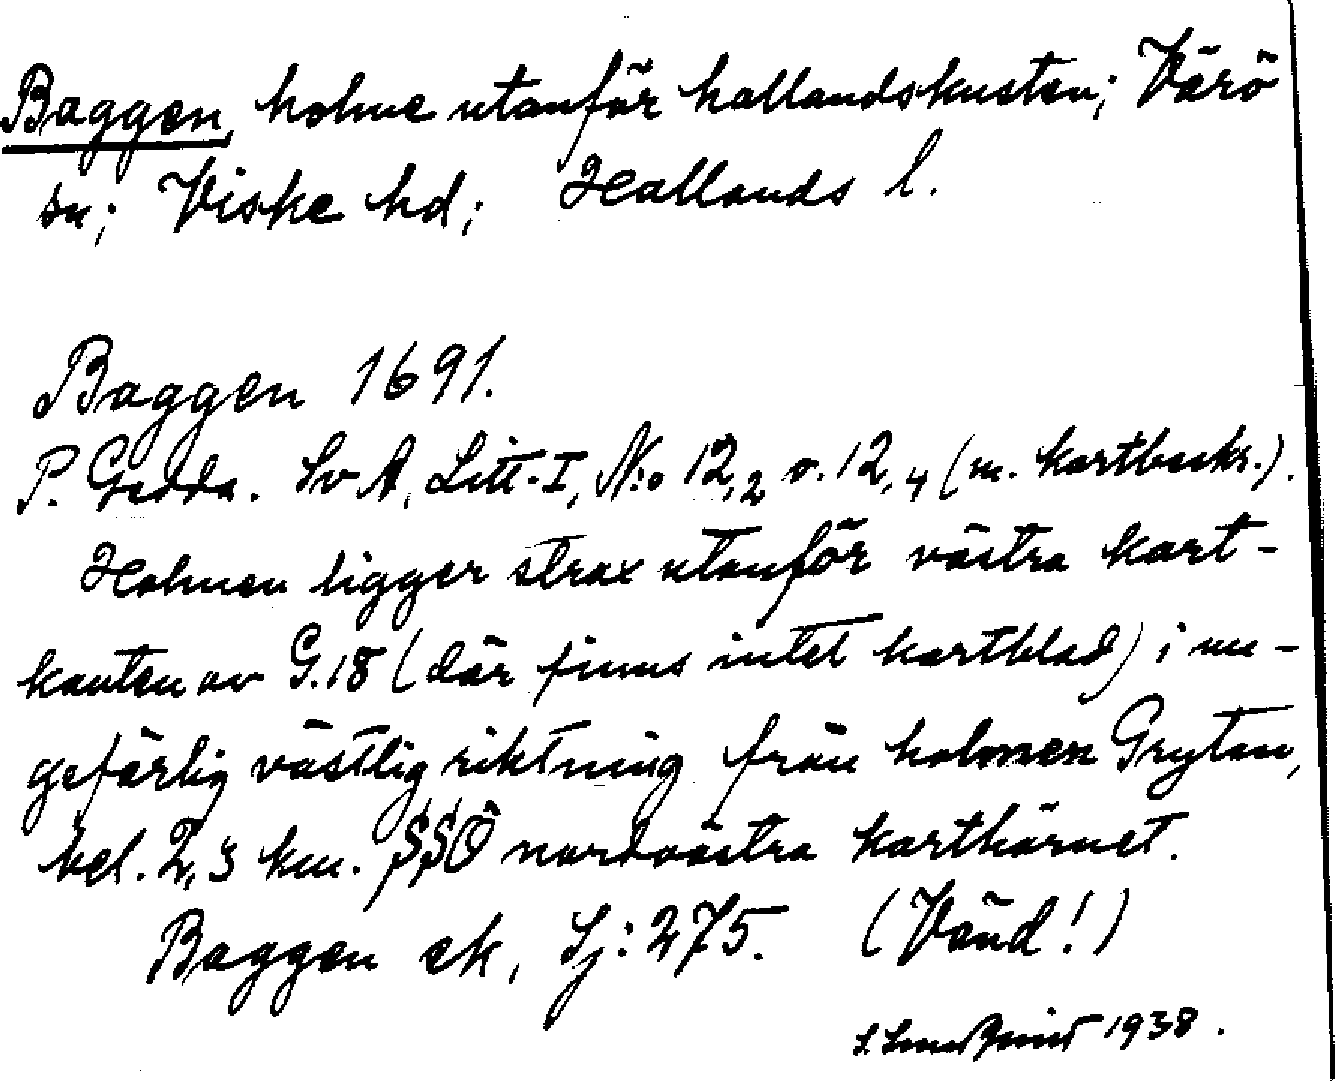 Baggen, holme utanför hallandskusten; Värö
sn; Viske hd; Hallands l.
Baggen 1691.
P. Gedda. SvA, Litt. I, N:o 12,2 o. 12,4 (m. kartbeskr.).
Holmen ligger strax utanför västra kart-
kanten av G.18 (där finns intet kartblad) i un-
gefärlig västlig riktning från holmen Grytan,
bel. 2,3 km. SSÖ nordvästra karthörnet.
Baggen ek, Sj: 275. (Vänd!)
1938.